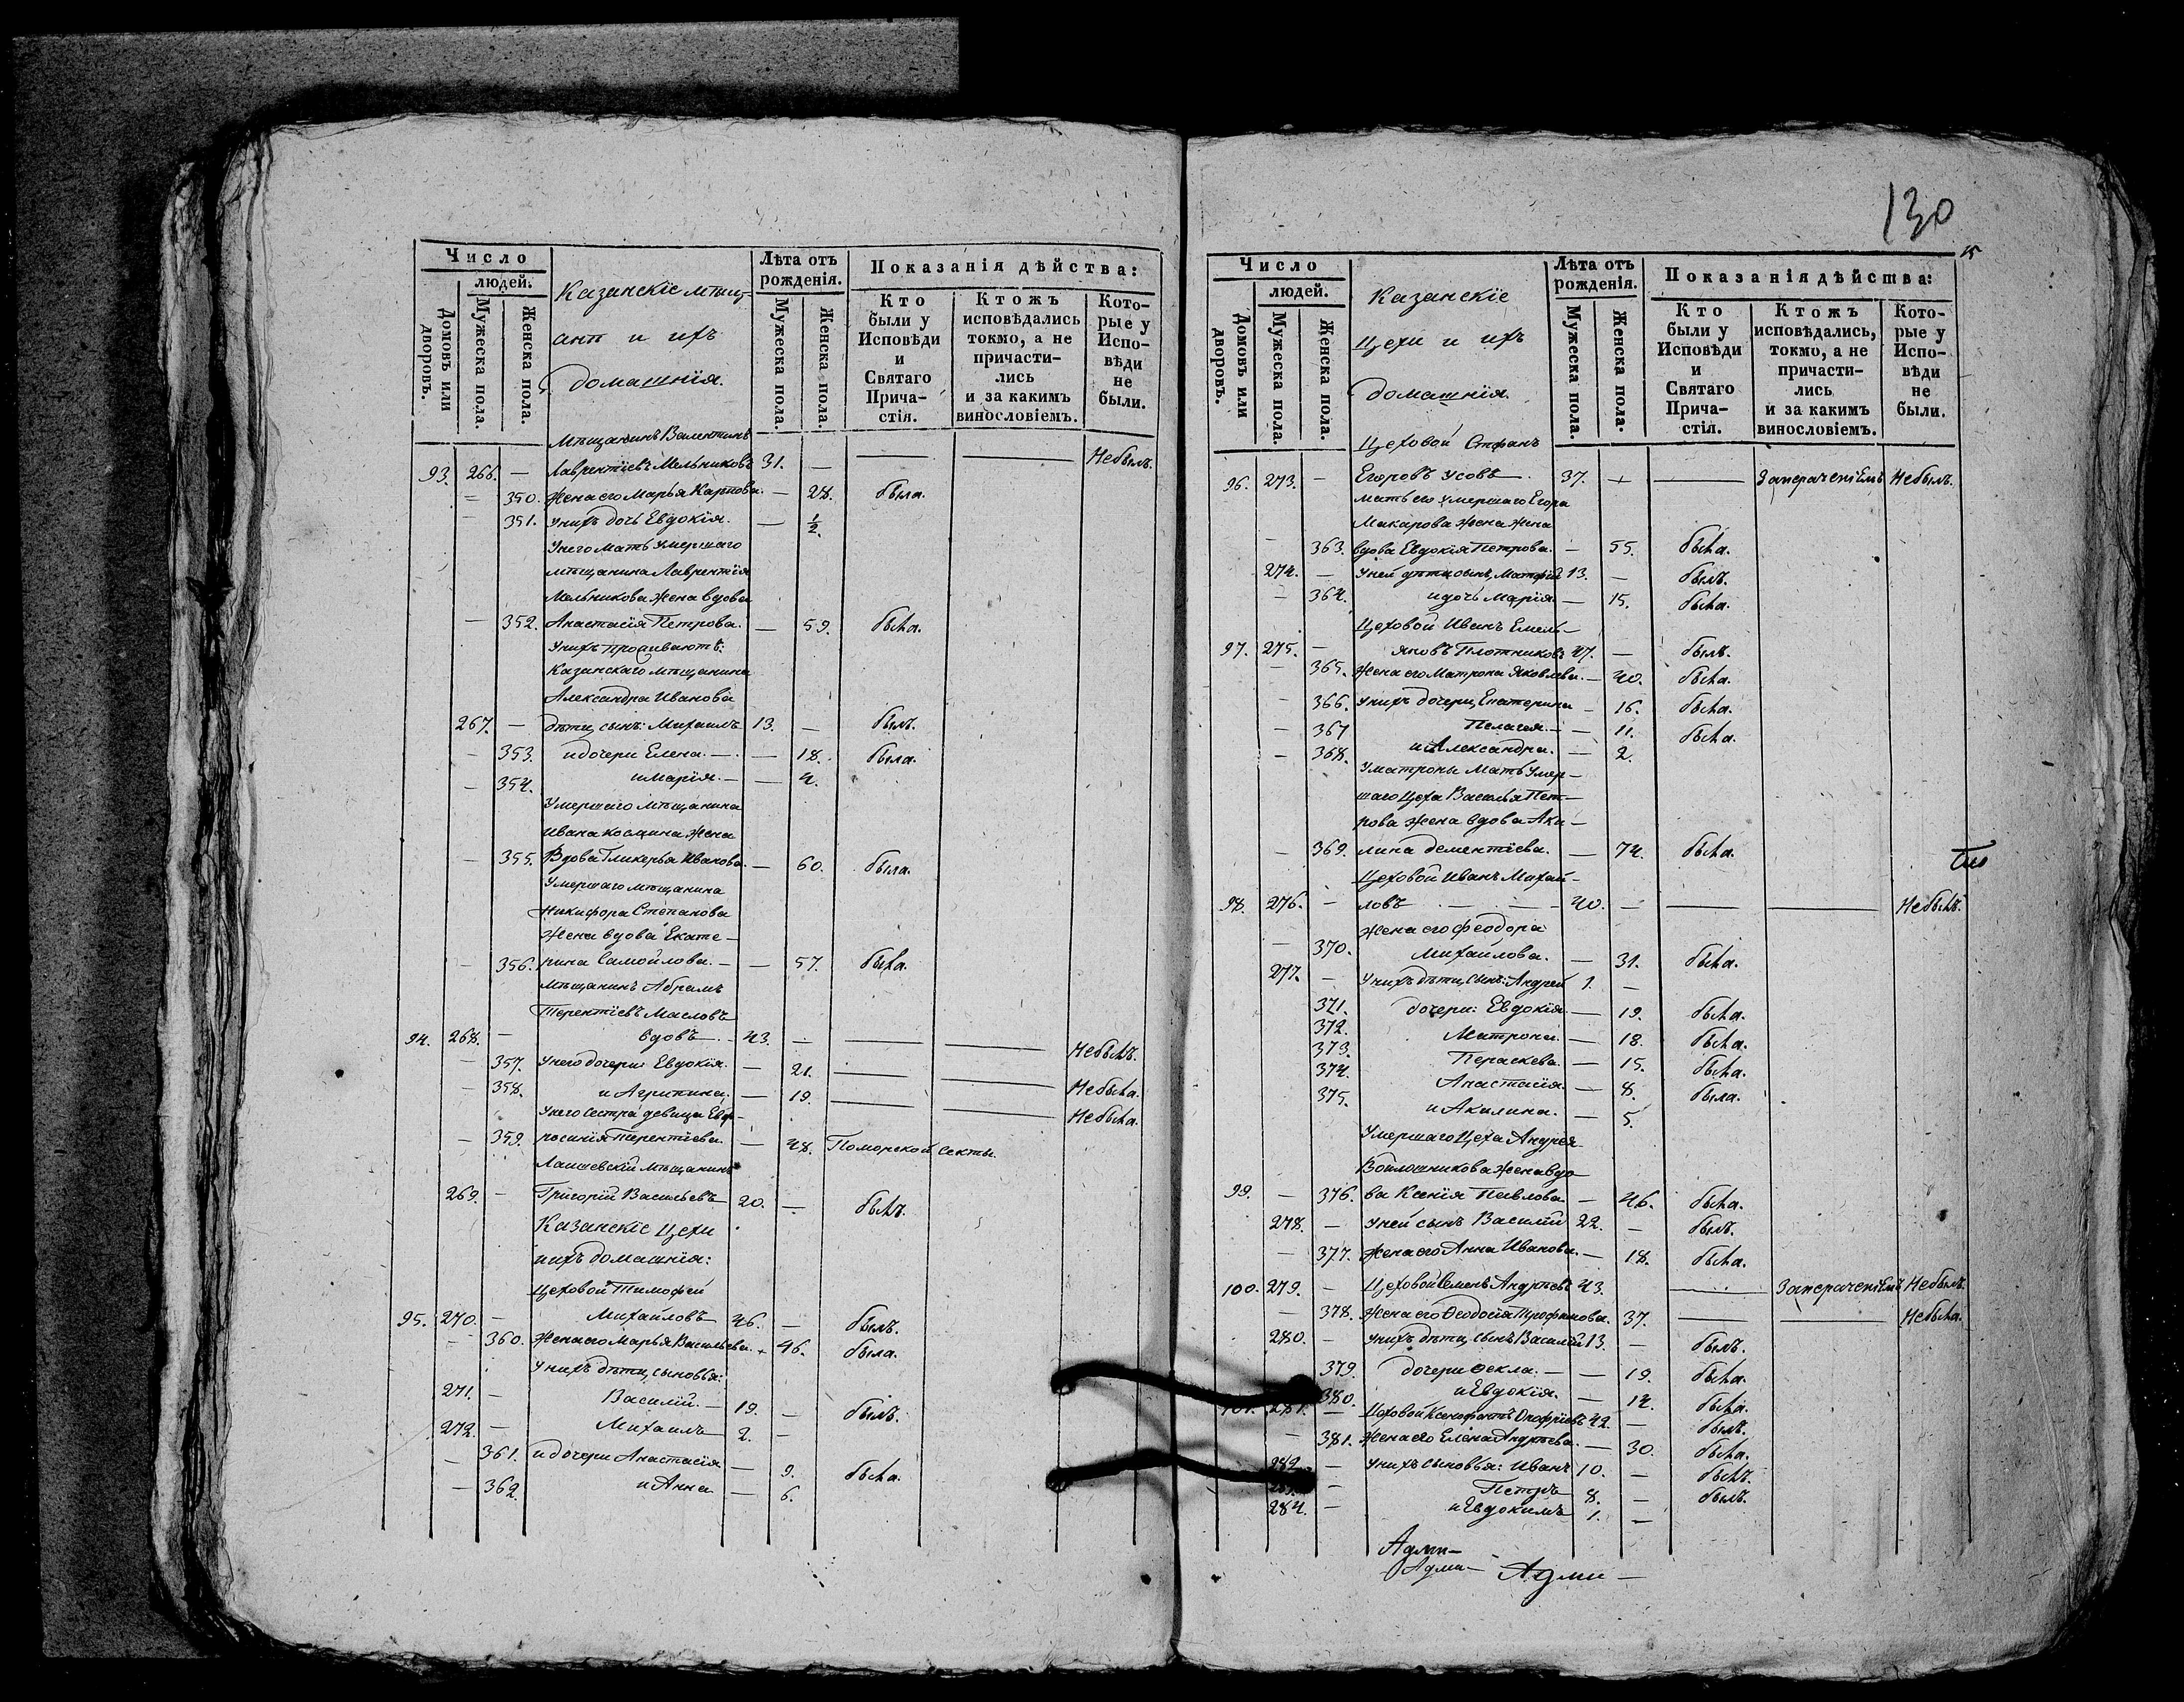 Число
людей.
Домовъ или дворовъ.
Мужеска пола.
Женска пола.
Казанскіе мѣщ-
анп и ихъ
домашнія.
Лѣта отъ рожденія.
Мужеска пола.
Женска пола.
Показанія дѣйства:
Кто были у Исповѣди и Святаго Прича-стія.
Ктожъ исповѣдались токмо, а не причасти-лись и за какимъ винословіемъ.
Кото-рые у Испо-вѣди не были.
Мѣщанинъ Валентинъ
93. 266. — Лаврентіевъ Мельниковъ 31. — — — Небылъ.
— 350. Жена его Марья Карпова. — 28. была.
— 351. У нихъ дочь Евдокія. — ½.
У него мать умершаго
мѣщанина Лаврентія
Мельникова жена вдова
— 352. Анастасія Петрова. — 59. была.
У нихъ проживаютъ:
Казанскаго мѣщанина
Александра Иванова
267. — дѣти, сынъ: Михаилъ 13. — былъ.
— 353. и дочери Елена. — — 18. была.
— 354. и Марія. — — 4.
Умершаго мѣщанина
Ивана Космина жена
— 355. Вдова Гликерья Иванова. — 60. была.
Умершаго мѣщанина
Никифора Степанова
жена вдова Екате-
— 356. рина Самойлова. — — 57. была.
Мѣщанинъ Абрамъ
Терентіевъ Масловъ
94. 268. — вдовъ — 43. — — — Небылъ.
— 357. У него дочери Евдокія. — 21. — — Небыла.
— 358. и Агрипина. — 19. — — Небыла.
У него сестра девица Евф-
— 359. росинія Терентіева. — 48. Поморской секты.
Лаишевскій мѣщанинъ
269. — Григорій Васильевъ 20. — былъ.
Казанскіе Цехи
и ихъ домашнія:
Цеховой Тимофей
95. 270. — Михаиловъ 46. — былъ.
— 360. Жена его Марья Васильева. + 46. была.
У нихъ дѣти, сыновья:
271. — Василій. — 19. — былъ.
272. — Михаилъ 2. —
— 361. и дочери Анастасія — 9. была.
— 362. и Анна — 6.
130
15
Число
людей.
Домовъ или дворовъ.
Мужеска пола.
Женска пола.
Казанскіе
Цехи и ихъ
домашнія.
Лѣта отъ рожденія.
Мужеска пола.
Женска пола.
Показанія дѣйства:
Кто были у Исповѣди и Святаго Прича-стія.
Ктожъ исповѣдались, токмо, а не причасти-лись и за какимъ винословіемъ.
Кото-рые у Испо-вѣди не были.
Цеховой Стефанъ
96. 273. — Егоровъ Усовъ 37. + — Запераченіемъ Небылъ.
Мать его умершаго Егора
Макарова жена
— 363. вдова Евдокія Петрова. — 55. была.
274. — У ней дѣти сынъ, Матфей 13. — былъ.
— 364. и дочь Марія. — 15. была.
Цеховой Иванъ Емель-
97. 275. — яновъ Плотниковъ 47. — былъ.
— 365. Жена его Матрона Яковлева. — 40. была.
— 366. У нихъ дочери, Екатерина — 16. была.
— 367 Пелагея. — — 11. была.
— 368. и Александра. — 2.
У Матроны мать умер-
шаго Цеха Василья Пет-
рова жена вдова Аки-
— 369. лина Дементіева. — 74. была.
Цеховой Иванъ Михай-
98. 276. — ловъ — — 40. — — — Небылъ.
Жена его Феодора
— 370. Михаилова. — 31. была.
277. — У нихъ дѣти, сынъ: Андрей 1. —
371. дочери: Евдокія. — 19. была.
372. Матрона. — 18. была.
373. Пераскева. — 15. была.
374. Анастасія. — 8. была.
375. и Акилина. — 5.
Умершаго Цеха Андрея
Войлошникова жена вдо-
99. — 376. ва Ксенія Павлова. — 46. была.
278. — У ней сынъ Василій 22. — былъ.
— 377. Жена его Анна Иванова. — 18. была.
100. 279. — Цеховой Семенъ Андреевъ 43. — Запераченіемъ Небылъ.
— 378. Жена его Ѳеодосія Трофимова. 37. — — Небыла.
280. — У нихъ дѣти, сынъ Василій 13. — былъ.
379. дочери Ѳекла. — — 19. была.
380. и Евдокія. — 14. была.
101. 281. — Цеховой Ксенофонтъ Онофріевъ 42. — былъ.
— 381. Жена его Елена Андреева. — 30. была.
282. — У нихъ сыновья: Иванъ 10. — былъ.
— Петръ 8. — былъ.
284. — и Евдокимъ 1. —
Адми-
Адми- Адми-